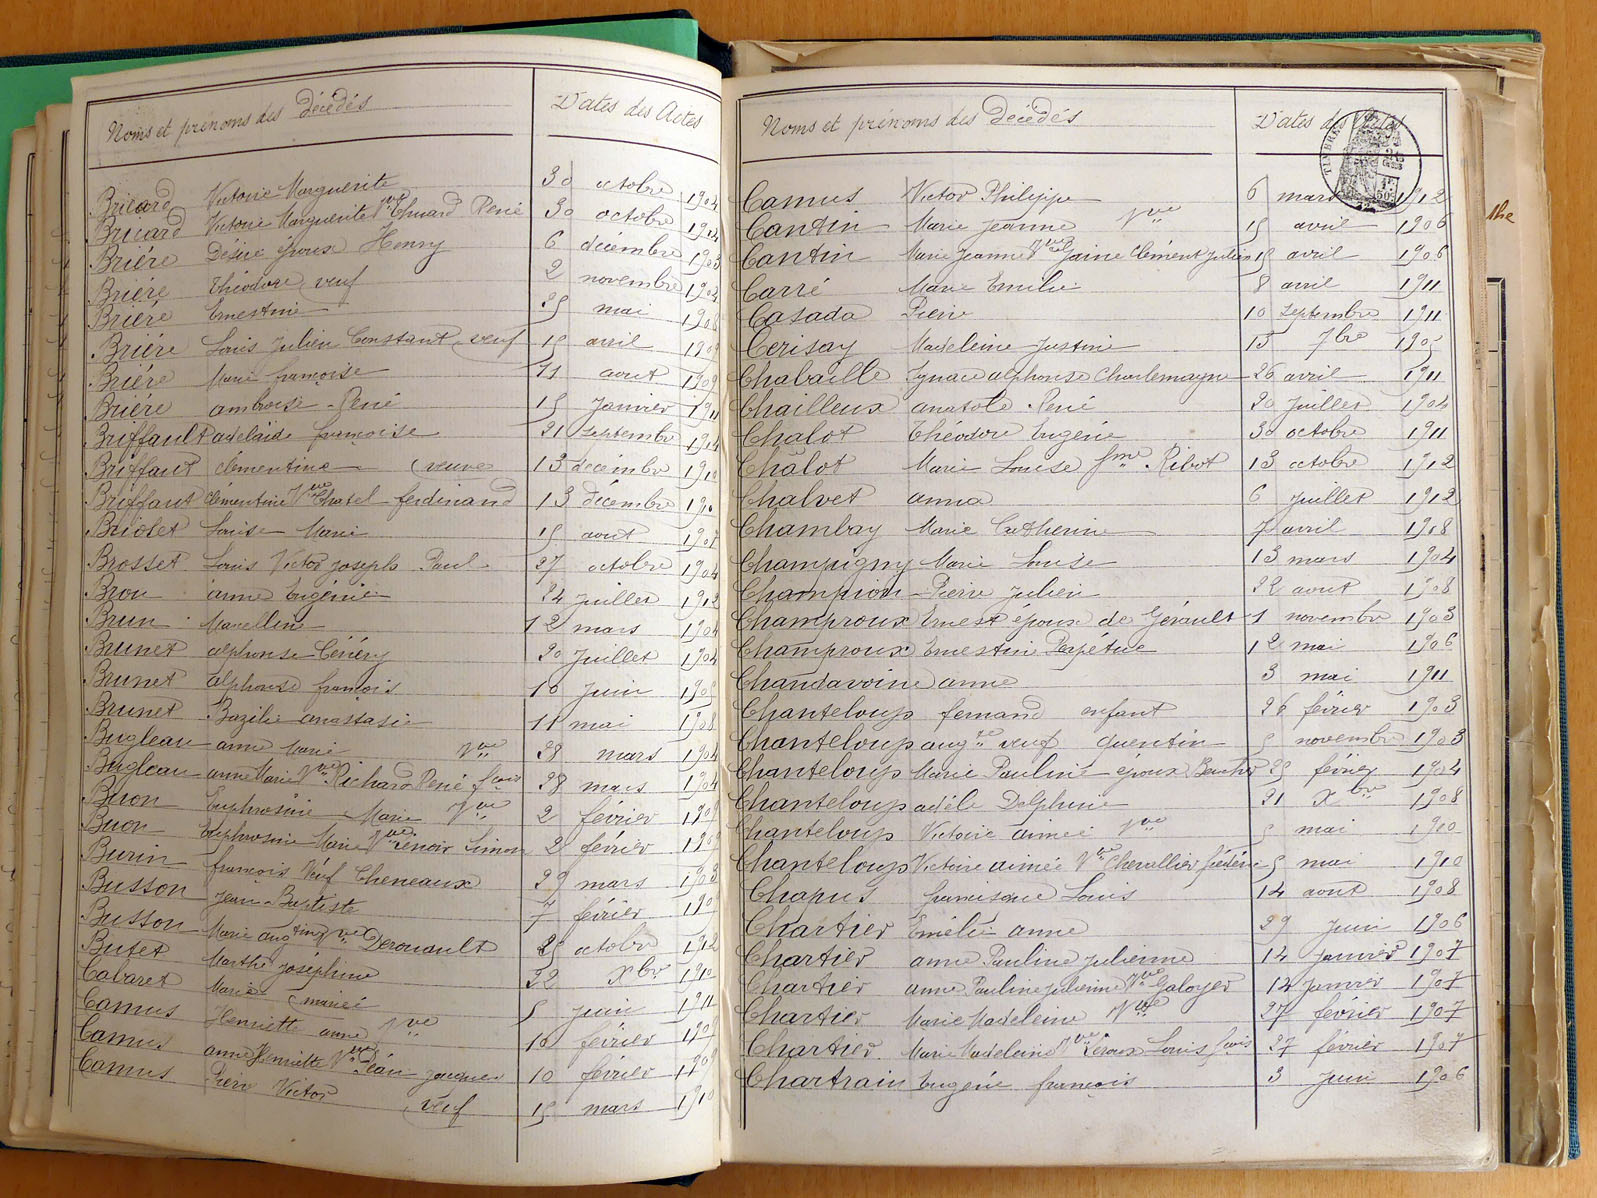 Noms et prénoms des Décédés Dates des Actes
Bricard Victoire Marguerite 30 octobre 1904
Bricard Victoire Marguerite Vve René 30 octobre 1904
Brière Désiré époux Henry 6 décembre 1903
Brière Théodore veuf 2 novembre 1904
Brière Ernestine 25 mai 1908
Brière Louis Julien Constant veuf 15 avril 1909
Brière Marie françoise 11 aout 1909
Brière ambroise René 15 Janvier 1911
Briffault adelaide françoise 21 septembre
Briffaut clémentine (veuve) 13 décembre 1910
Briffaut Clémentine Vve Chatel ferdinand 13 décembre 1910
Briolet Louise Marie 15 aout 1907
Brosset Louis Victor joseph Paul 27 octobre 1904
Brou anne Eugénie 24 Juillet 1912
Brun Marcelline 12 mars 1904
Brunet alphonse Cénéry 20 Juillet 1904
Brunet alphonse françois 10 Juin
Brunet Bazilie anastasie 11 mai 1908
Bugleau anne Marie Vve 28 mars 1904
Bugleau anne Marie Vve Richard René fçois 28 mars 1904
Buon Euphrosine Marie Vve 2 février 1909
Buon Euphrosine Marie Vve Lenoir Simon 2 février 1909
Burin françois Veuf Cheneaux 29 mars 1908
Busson Jean-Baptiste 7 février
Busson Marie augtine Vve Derouault 25 octobre 1912
Butet Marthe Joséphine 22 Xbre 1910
Cabaret Marie (mariée) 5 Juin 1911
Camus Henriette anne Vve 10 février 1908
Camus anne Henriette Vve Péan jacques 10 février 1908
Camus Pierre Victor veuf 15 mars 1910
Noms et prénoms des Décédés Dates des Actes
TIMBRE
Camus Victor Philippe 6 mars 1912
Cantin Marie Jeanne Vve 15 avril 1906
Cantin Marie Jeanne Vve Jaine Clément Julien 15 avril 1906
Carré Marie Emilie 8 avril 1911
Casada Pierre 10 septembre 1911
Cerisay Madeleine Justine 13 7bre 1905
Chabaille Ignace alphonse Charlemagne 26 avril 1911
Chailleux anatole René 20 Juillet 1904
Chalot Théodore Eugène 30 octobre 1911
Châlot Marie Louise fme Ribot 13 octobre 1912
Chalvet anna 6 Juillet 1912
Chambay Marie Catherine 7 avril 1908
Champigny Marie Louise 13 mars 1904
Champion Pierre Julien 22 aout 1908
Champroux Ernest époux de Gérault 1 novembre 1903
Champroux Ernestine Perpétue 12 mai 1906
Chandavoine anne 3 mai 1911
Chanteloup fernand enfant 26 février 1903
Chanteloup augte veuf quentin 5 novembre 1903
Chanteloup Marie Pauline époux 25 février 1904
Chanteloup adèle Delphine 21 Xbre 1908
Chanteloup Victoire aimée Vve 5 mai 1910
Chanteloup Victoire aimée Vve Chevallier frédéric 5 mai 1910
Chapus françisque Louis 14 aout 1908
Chartier Emélie anne 29 Juin 1906
Chartier anne Pauline Julienne 14 Janvier 1907
Chartier anne Pauline Julienne Vve Galoyer 14 Janvier 1907
Chartier Marie Madeleine Vve 27 février 1907
Chartier Marie Madeleine Vve Leroux Louis fçois 27 février 1907
Chartrain Eugénie françois 3 Juin 1906